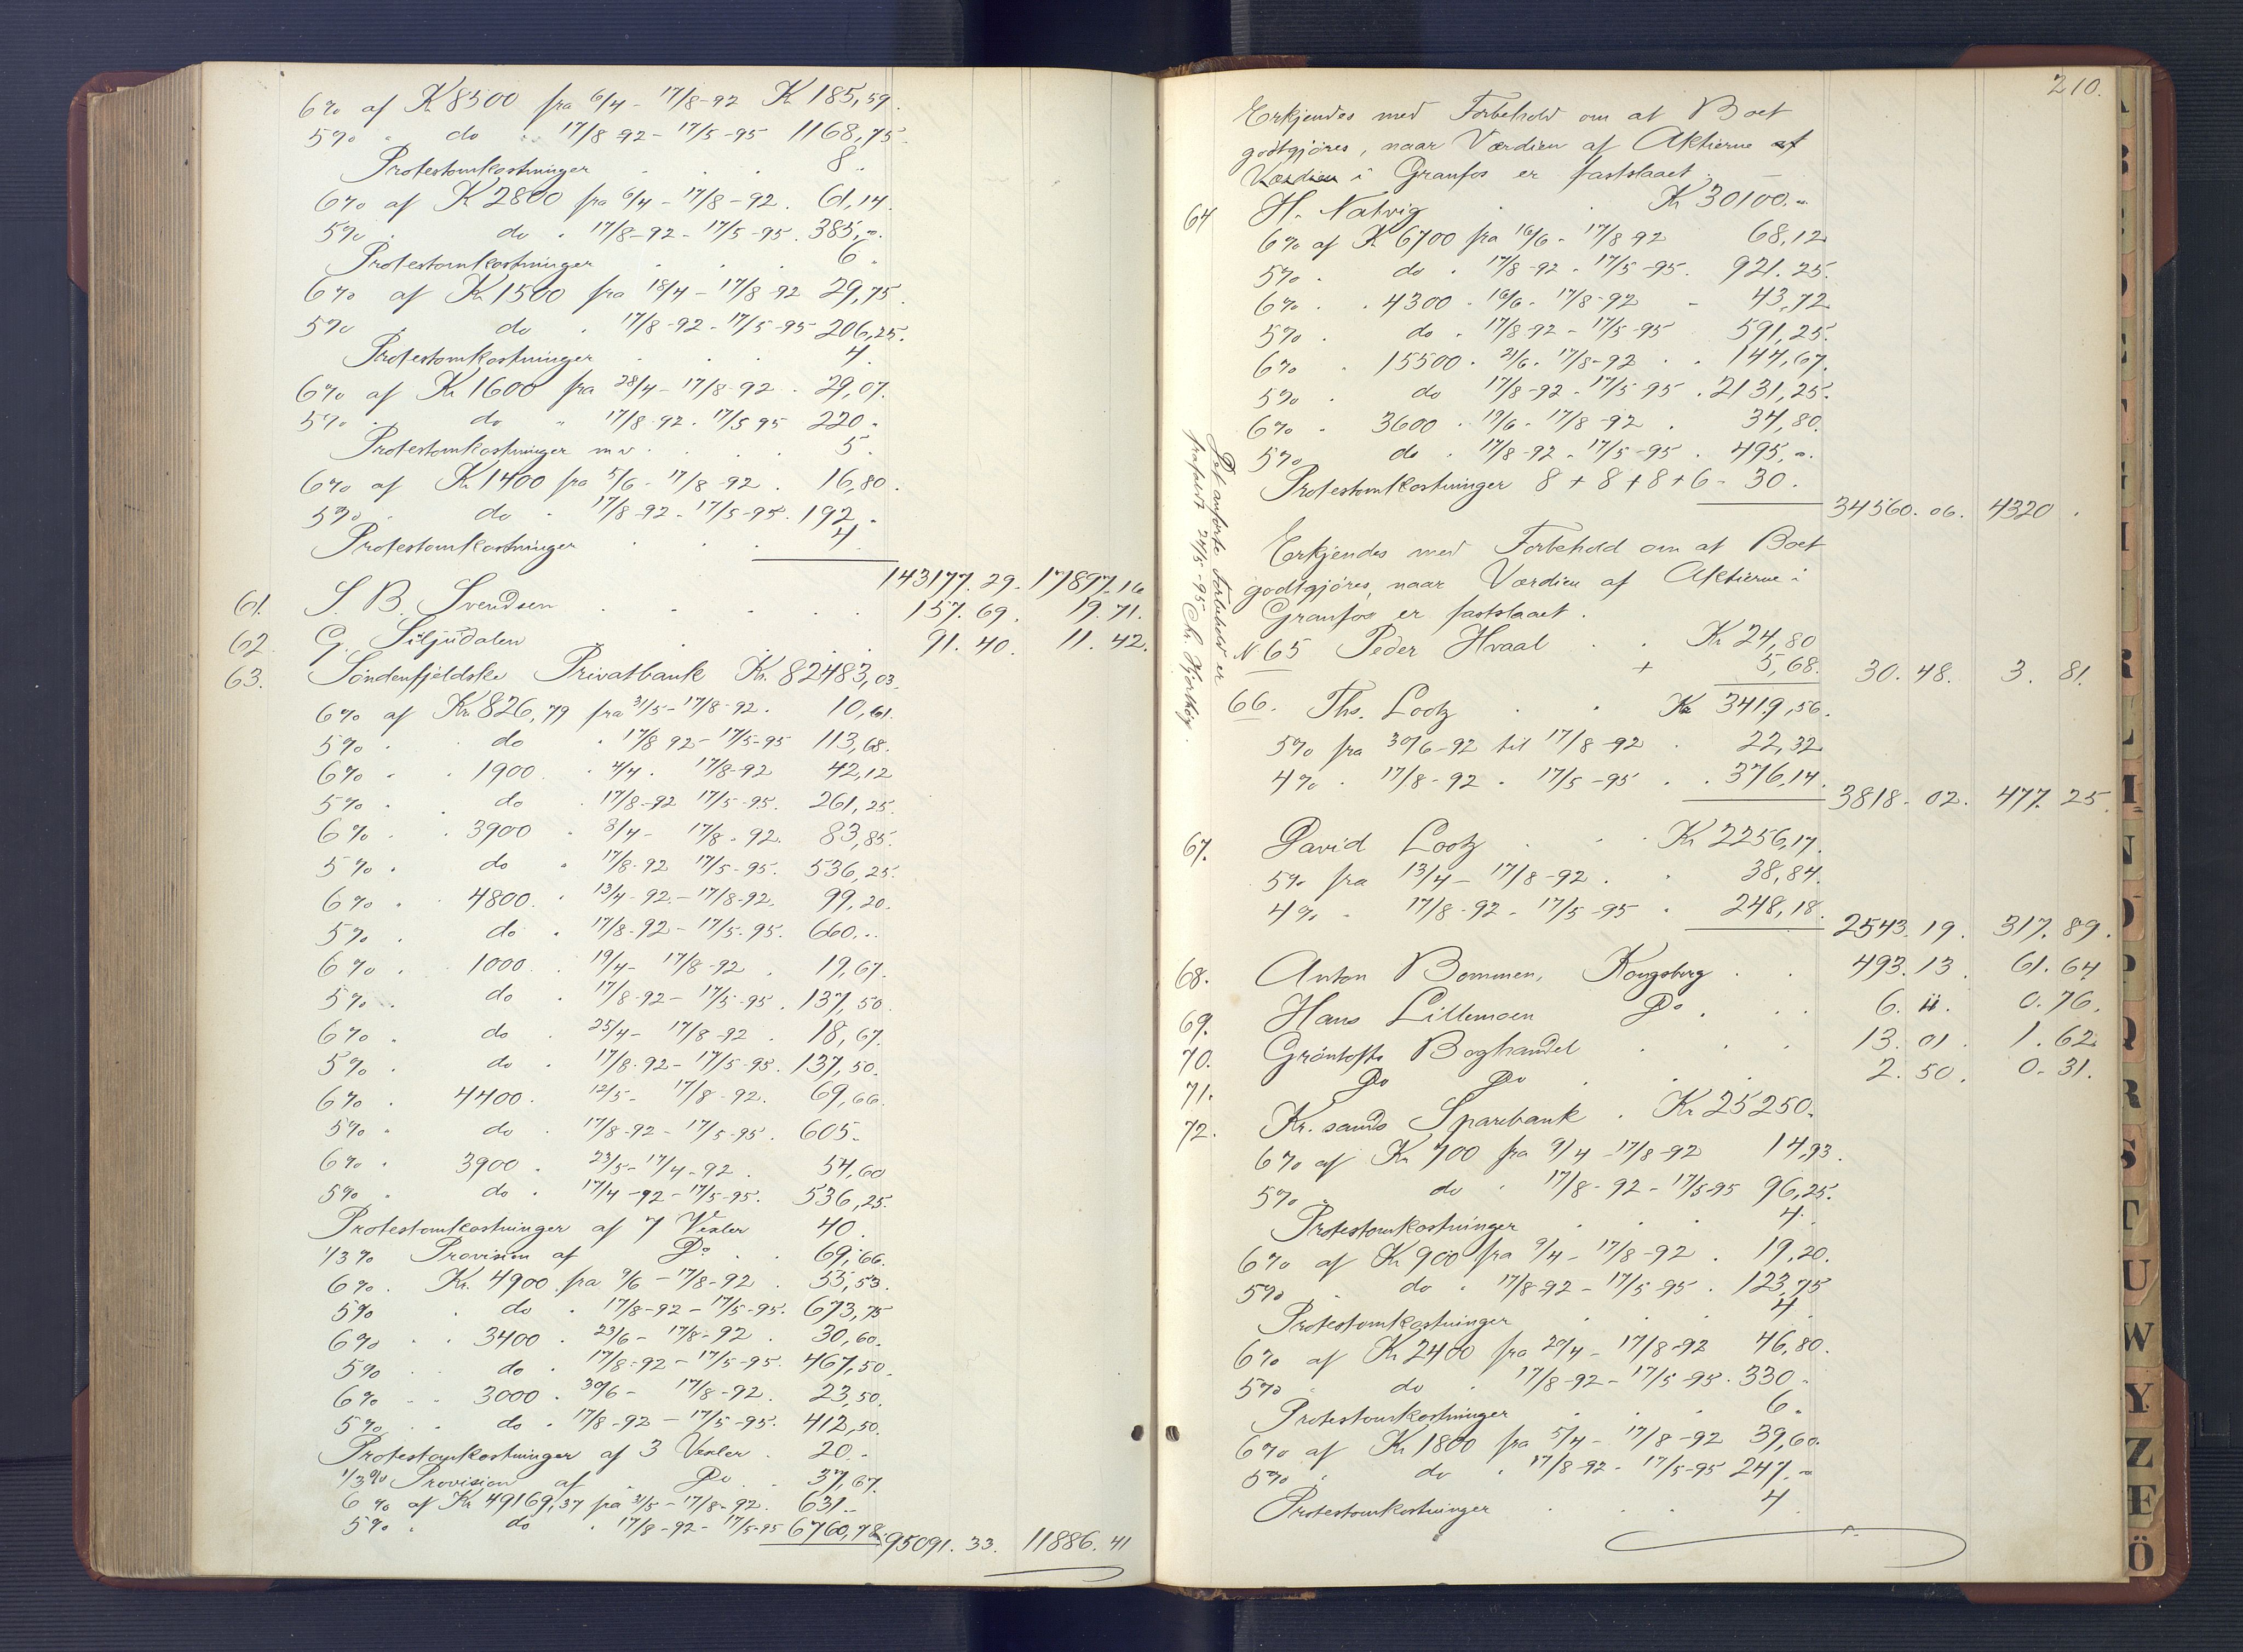 6% af K 8500 fra 6/4 - 17/8-92 K 185,59.
5% " do " 17/8 92 - 17/5 -95 1168,75
Protestomkostninger . . . 8.
6% af K 2800 fra 6/4 - 17/8 -92 . 61,14.
5% . do . 17/8-92 - 17/5 -95 . 385,".
Protestomkostninger . . . 6 "
6% af Kr 1500 fra 18/4 - 17/8 -92 29,75.
5% " do . 17/8 -92 - 17/5 -95 206,25.
Protestomkostninger . . . 4.
6% af Kr 1600 fra 28/4 - 17/8 92 . 29,07.
5% . do " 17/8 92 - 17/5 95 220 "
Protestomkostninger m v . . . . 5.
6% af Kr 1400 fra 5/6 - 17/8 -92 . 16,80.
5% . do . 17/8 -92 - 17/5 -95. 192 "
Protestomkostninger . . . 4.
143177.29. 17897.16
61. S. B. Svendsen . . . . . 157.69. 19.71.
62. G. Siljudalen . . . 91.40. 11.42.
63. Söndenfjeldske Privatbank Kr. 82483,03.
6% af Kr. 826,79 fra 31/5 - 17/8-92. 10,61.
5% . do . 17/8 92 - 17/5-95 113,68.
6% . . 1900 . 4/4 . 17/8-92 42,12
5% . do . 17/8-92 17/5 -95. 261,25.
6% . . 3900 . 8/4 - 17/8 - 92. 83,85.
5% . do . 17/8-92 17/5 -95. 536,25.
6% . . 4800. . 13/4 -92.- 17/8-92. 99,20.
5% . do . 17/8-92 - 17/5-95. 660."
6% . 1000. . 19/4 - 17/8 -92 . 19,67.
5% . do . 17/8-92 - 17/5 -95 . 137,50.
6% . do . 25/4 - 17/8 -92 . 18,67.
5% . do . 17/8-92 - 17/5 -95. 137,50.
6% . 4400. 12/5 - 17/8 -92. 69,66.
5% " do . 17/8-92 - 17/5 -95. 605.-
6% . 3900 . 23/5 - 17/4 -92. 54,60
5% " do . 17/4 -92 - 17/5-95. 536,25.
Protestomkostninger af 7 Vexler 40.
1/3 % Provision af Do . . 69,66.
6% . Kr. 4900 fra 9/6 - 17/8-92 . 55,53.
5% . do . 17/8-92 - 17/5 -95. 673,75
6% . . 3400 . 23/6 - 17/8-92 . 30,60.
5% . do . 17/8-92 - 17/5 -95. 467,50.
6% . . 3000 . 30/6 - 17/8 -92. 23,50.
5% . do . 17/8 -92 - 17/5 -95. 412,50.
Protestomkostninger af 3 Vexler . 20.-
1/3 % Provision af . Do . . 37,67.
6 % af Kr 49169,37 fra 31/5 - 17/8-92. 631.-
5% . do . 17/8 -92 - 17/5-95 6760,78. 95091.33. 11886.41
210.
Erkjendes med Forbehold om at Boet
godtgjöres, naar Værdien af Aktierne af
Værdien i Granfos er fastslaaet.
64 H. Natvig . . Kr 30100."
6% af K 6700 fra 16/6 - 17/8 92 68,12
5% . do . 17/8 -92 - 17/5 -95. 921.25.
6% . . 4300 . 16/6 - 17/8-92 - 43,72
5% . do . 17/8-92 - 17/5-95 591,25.
6% . 15500 . 21/6 - 17/8-92 . . 144,67.
5% . do 17/8-92 - 17/5 95 . 2131,25.
6% . 3600 . 19/6 - 17/8 -92 . 34,80.
5% do . 17/8-92 - 17/5-95 . 495,".
Protestomkostninger 8 + 8 + 8 + 6 - 30.
34560.06. 4320 .
Erkjendes med Forbehold om at Boet
godtgjöres, naar Værdien af Aktierne i
Granfos er fastslaaet.
Det anförte Forbehold er
frafaldt 24/5 -95 Chr. Hjorthöy.
N 65 Peder Hvaal . . Kr 24,80
+ 5,68. 30.48. 3.81.
66. Ths. Lootz . . Kr 3419,56.
5% fra 30/6-92 til 17/8 -92 . 22,32
4% . 17/8-92 . 17/5 -95 . . 376,14.
3818.02. 477.25.
67. David Lootz . . . Kr 2256,17.
5% fra 13/4 - 17/8 -92 . . 38,84.
4% . 17/8-92 - 17/5 -95 . 248,18.
2543.19. 317.89.
68. Anton Bommen, Kongsberg . . 493.13. 61.64
69. Hans Lillemoen Do . . . 6. ". 0.76.
70. Gröntofts Boghandel . . . 13.01. 1.62
71. Do Do . . . 2.50. 0.31.
72. Kr. sands Sparebank . Kr 25250.
6% af Kr 700 fra 9/4 - 17/8 -92 14,93.
5% . do . 17/8 - 92 - 17/5-95 96,25.
Protestomkostninger . . . 4.
6% af Kr 900 fra 9/4 - 17/8 -92 . 19,20.
5% . do . 17/8-92 - 17/5-95 . 123,75
Protestomkostninger . . . 4.
6% af Kr 2400 fra 20/4 - 17/8 -92 46,80.
5% . do . 17/8-92 - 17/5-95. 330 -
Protestomkostninger . . . 6.
6% af Kr 1800 fra 5/4 - 17/8 -92 39,60.
5% . do . 17/8-92 - 17/5-95 247."
Protestomkostninger . . . 4
M
N
P
Q
R
S
T
U
W
Y
Z
Æ
Ö